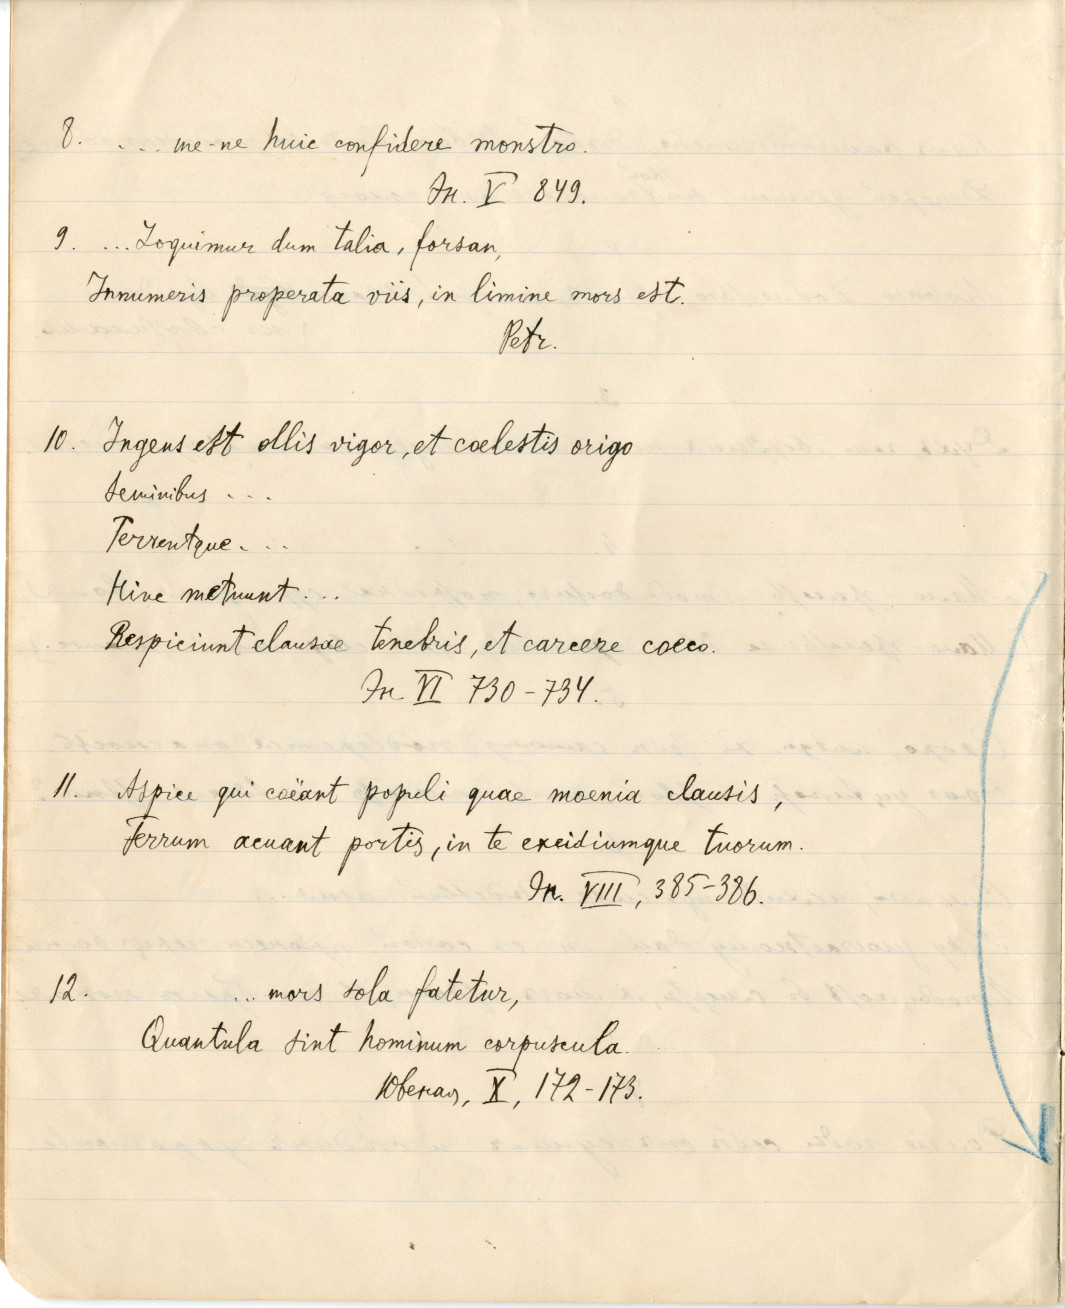 8. . ... me-ne huic confidere monstro.
Эн. V 849.
9. ... Loquimur dum talia, forsan,
Innumeris properata viis, in limine mors est.
Petr.
10. Ingens est ollis vigor, et coelestis origo
Seminibus ...
Terrentque ...
Hinc metuunt ...
Respiciunt clausae tenebris, et carcere coeco.
Эн. VI 730-734.
11. Aspice qui coëant populi quae moenia clausis,
Ferrum acuant portis, in te exeidiumque tuorum.
Эн. VIII, 385-386.
12. ... mors sola fatetur,
Quantula sint hominum corpuscula.
Ювенал, X, 172-173.